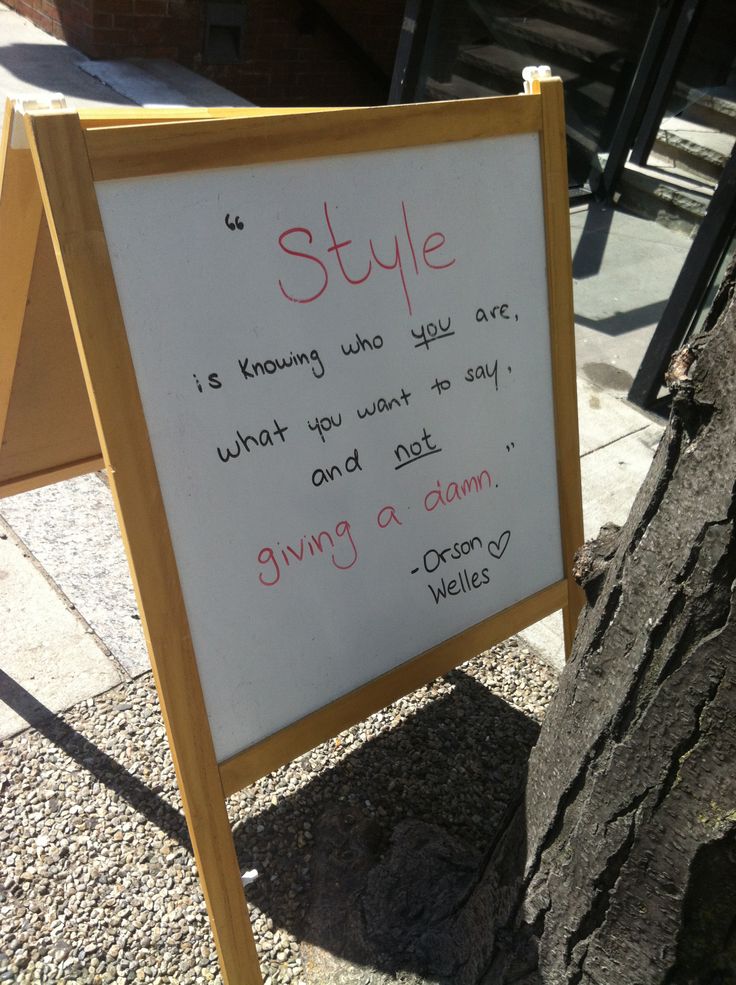 “ Style
is Knowing who you are,
what you want to say,
and not
giving a damn.”
-Orson
Welles ♡